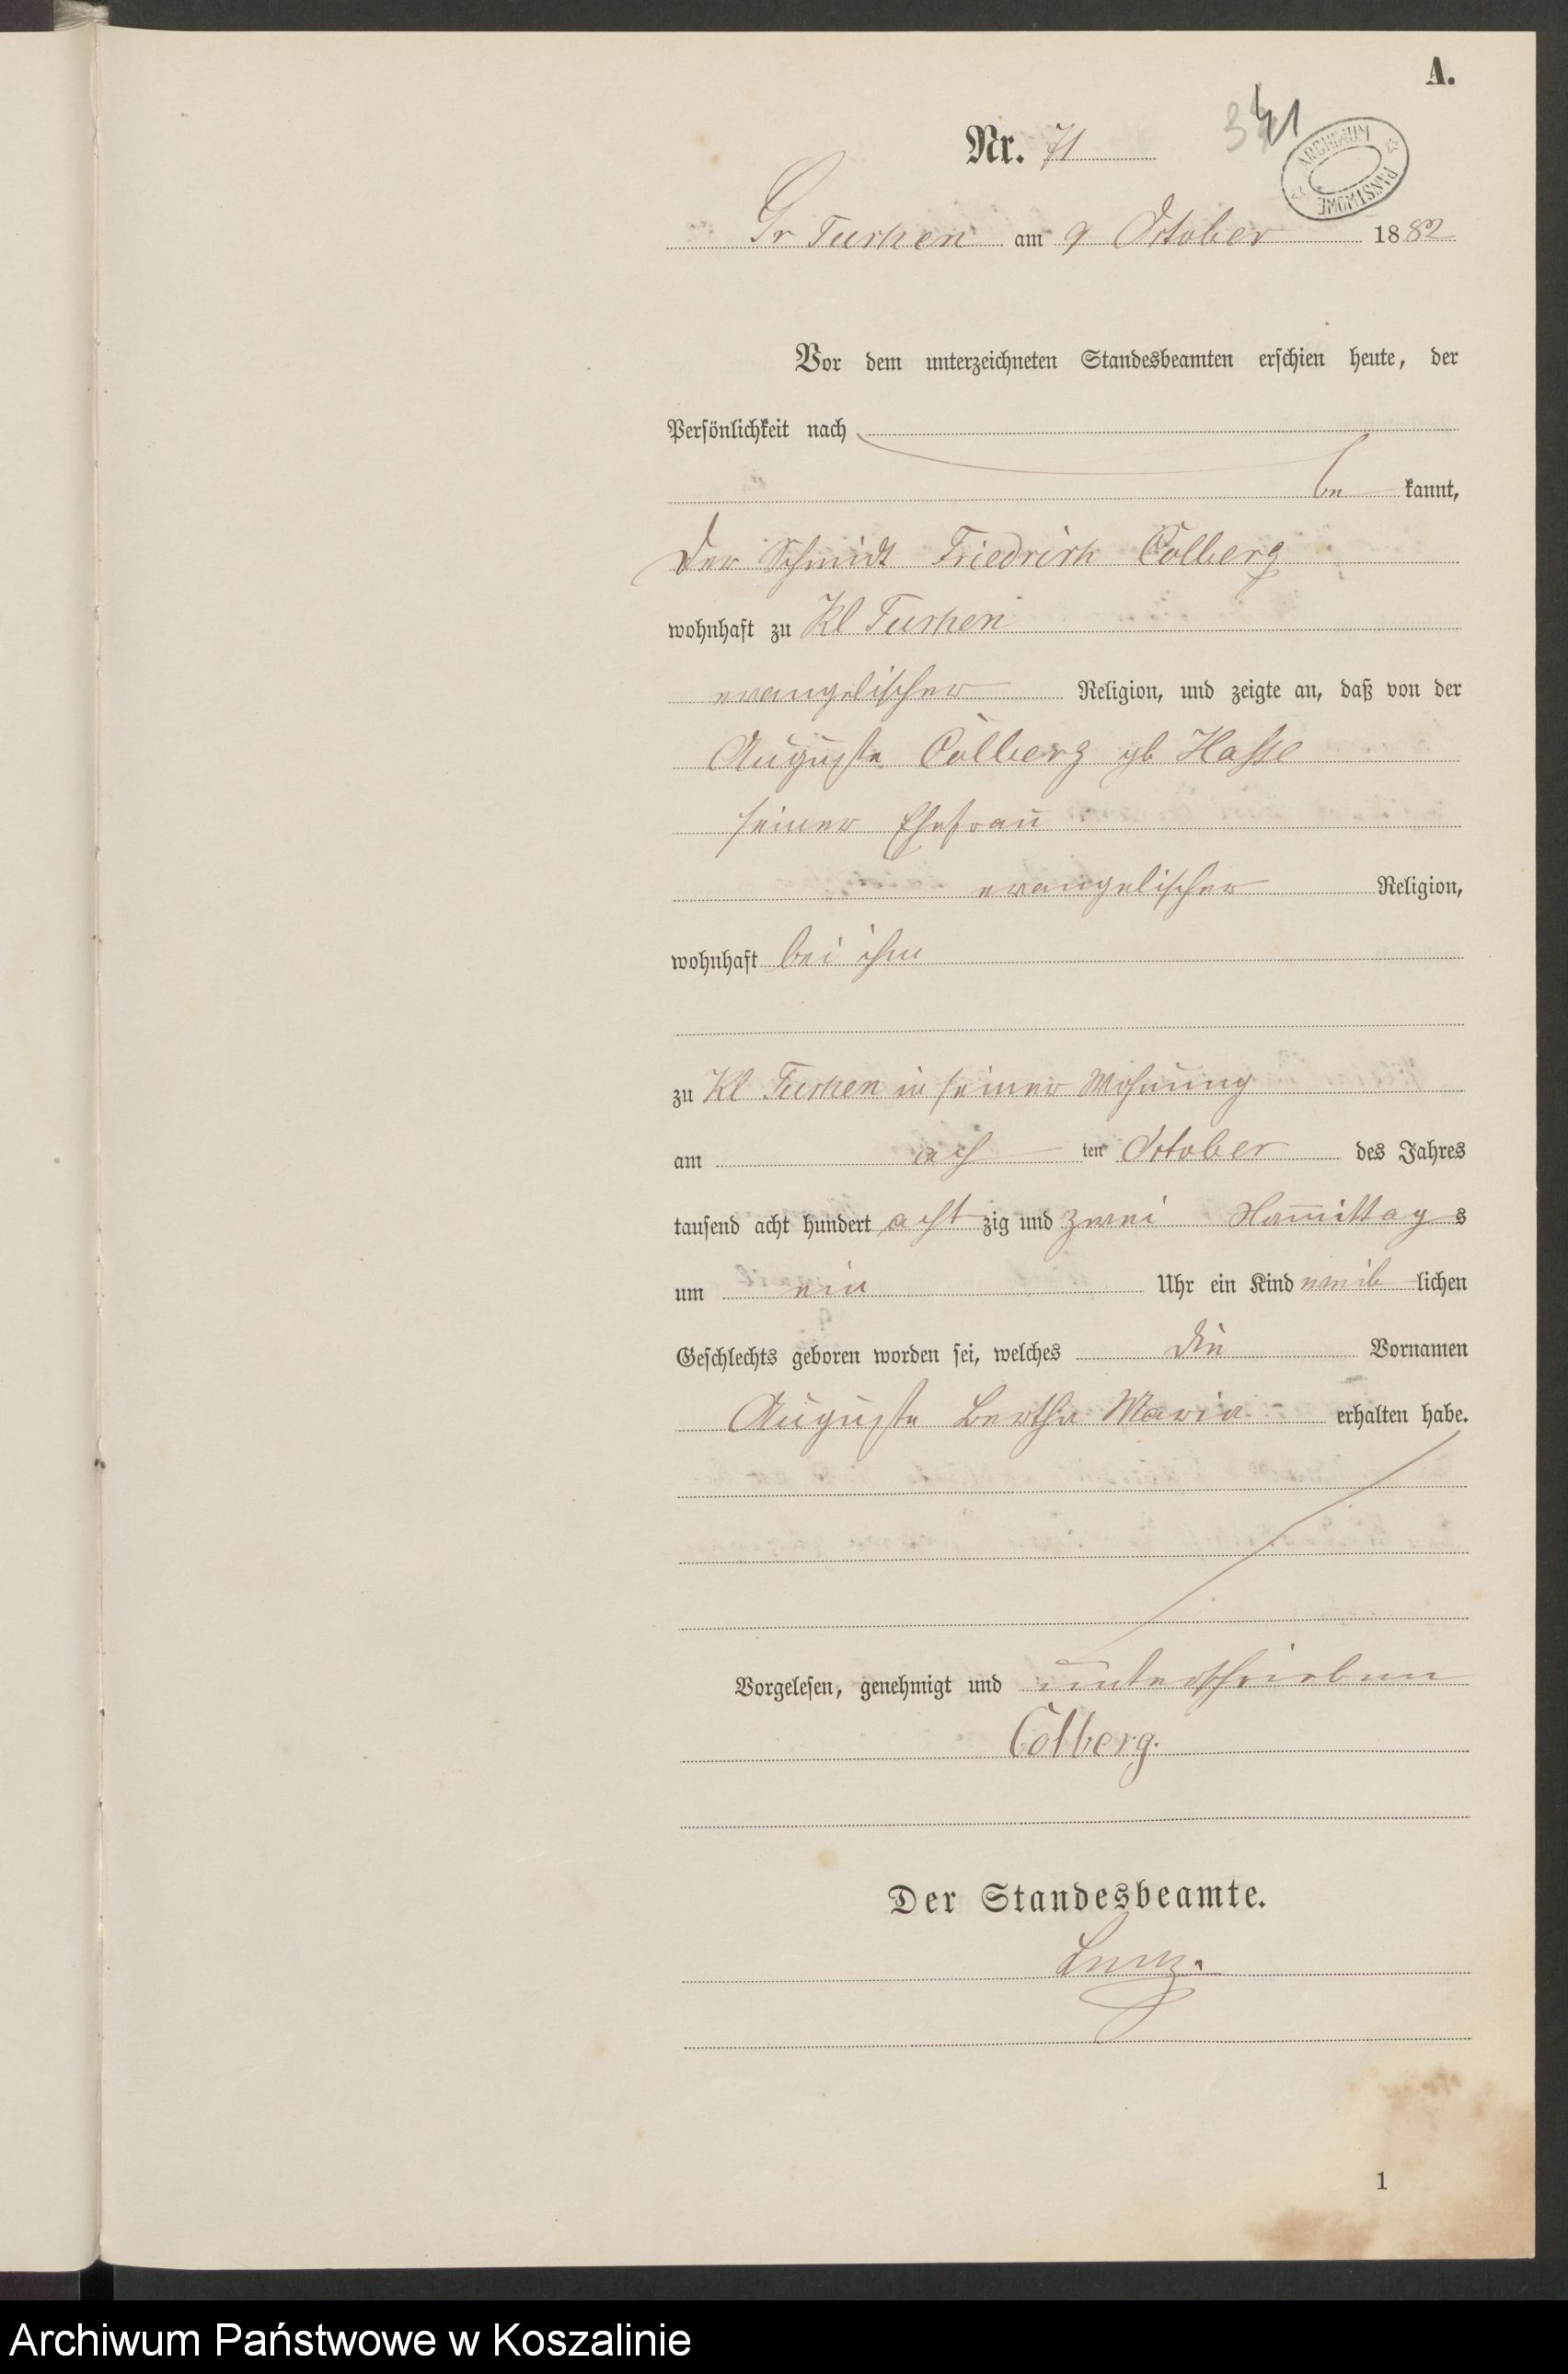 A.
Nr. 71
341
ARCHIWUM PAŃSTWOWE
Gr Tuchen am 9 October 1882
Vor dem unterzeichneten Standesbeamten erschien heute, der
Persönlichkeit nach
be kannt,
Der Schmidt Friedrich Colberg
wohnhaft zu Kl Tuchen
evangelischer Religion, und zeigte an, daß von der
Auguste Colberg gb Hasse
seiner Ehefrau
evangelischer Religion,
wohnhaft bei ihm
zu Kl Tuchen in seiner Wohnung
am ach ten October des Jahres
tausend acht hundert acht zig und zwei Nam̅ittags
um ein Uhr ein Kind weib lichen
Geschlechts geboren worden sei, welches die Vornamen
Auguste Bertha Maria erhalten habe.
Vorgelesen, genehmigt und unterschrieben
Colberg.
Der Standesbeamte.
1
Archiwum Państwowe w Koszalinie